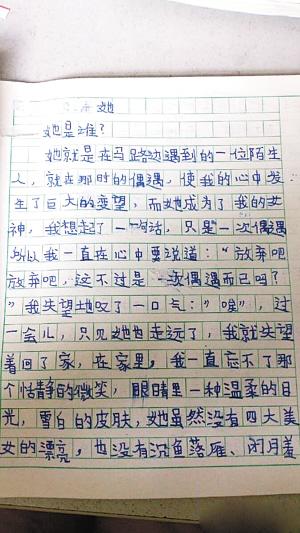 她
她是谁？
她就是在马路边遇到的一位陌生
人，就在那时的偶遇，使我的心中发
生了巨大的变望，而她成为了我的女
神，我想起了一句话，只是一次偶遇
所以我一直在心中要说道：“放弃吧
放弃吧，这不过是一次偶遇而已吗？
”我失望地叹了一口气：“唉”，过
一会儿，只见她也走远了，我就失望
着回了家，在家里，我一直忘不了那
个恬静的微笑，眼睛里一种温柔的目
光，雪白的皮肤，她虽然没有四大美
女的漂亮，也没有沉鱼落雁、闭月羞